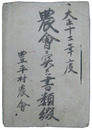 大正十二年度
農會ニ関スル書類綴
豊平村農會